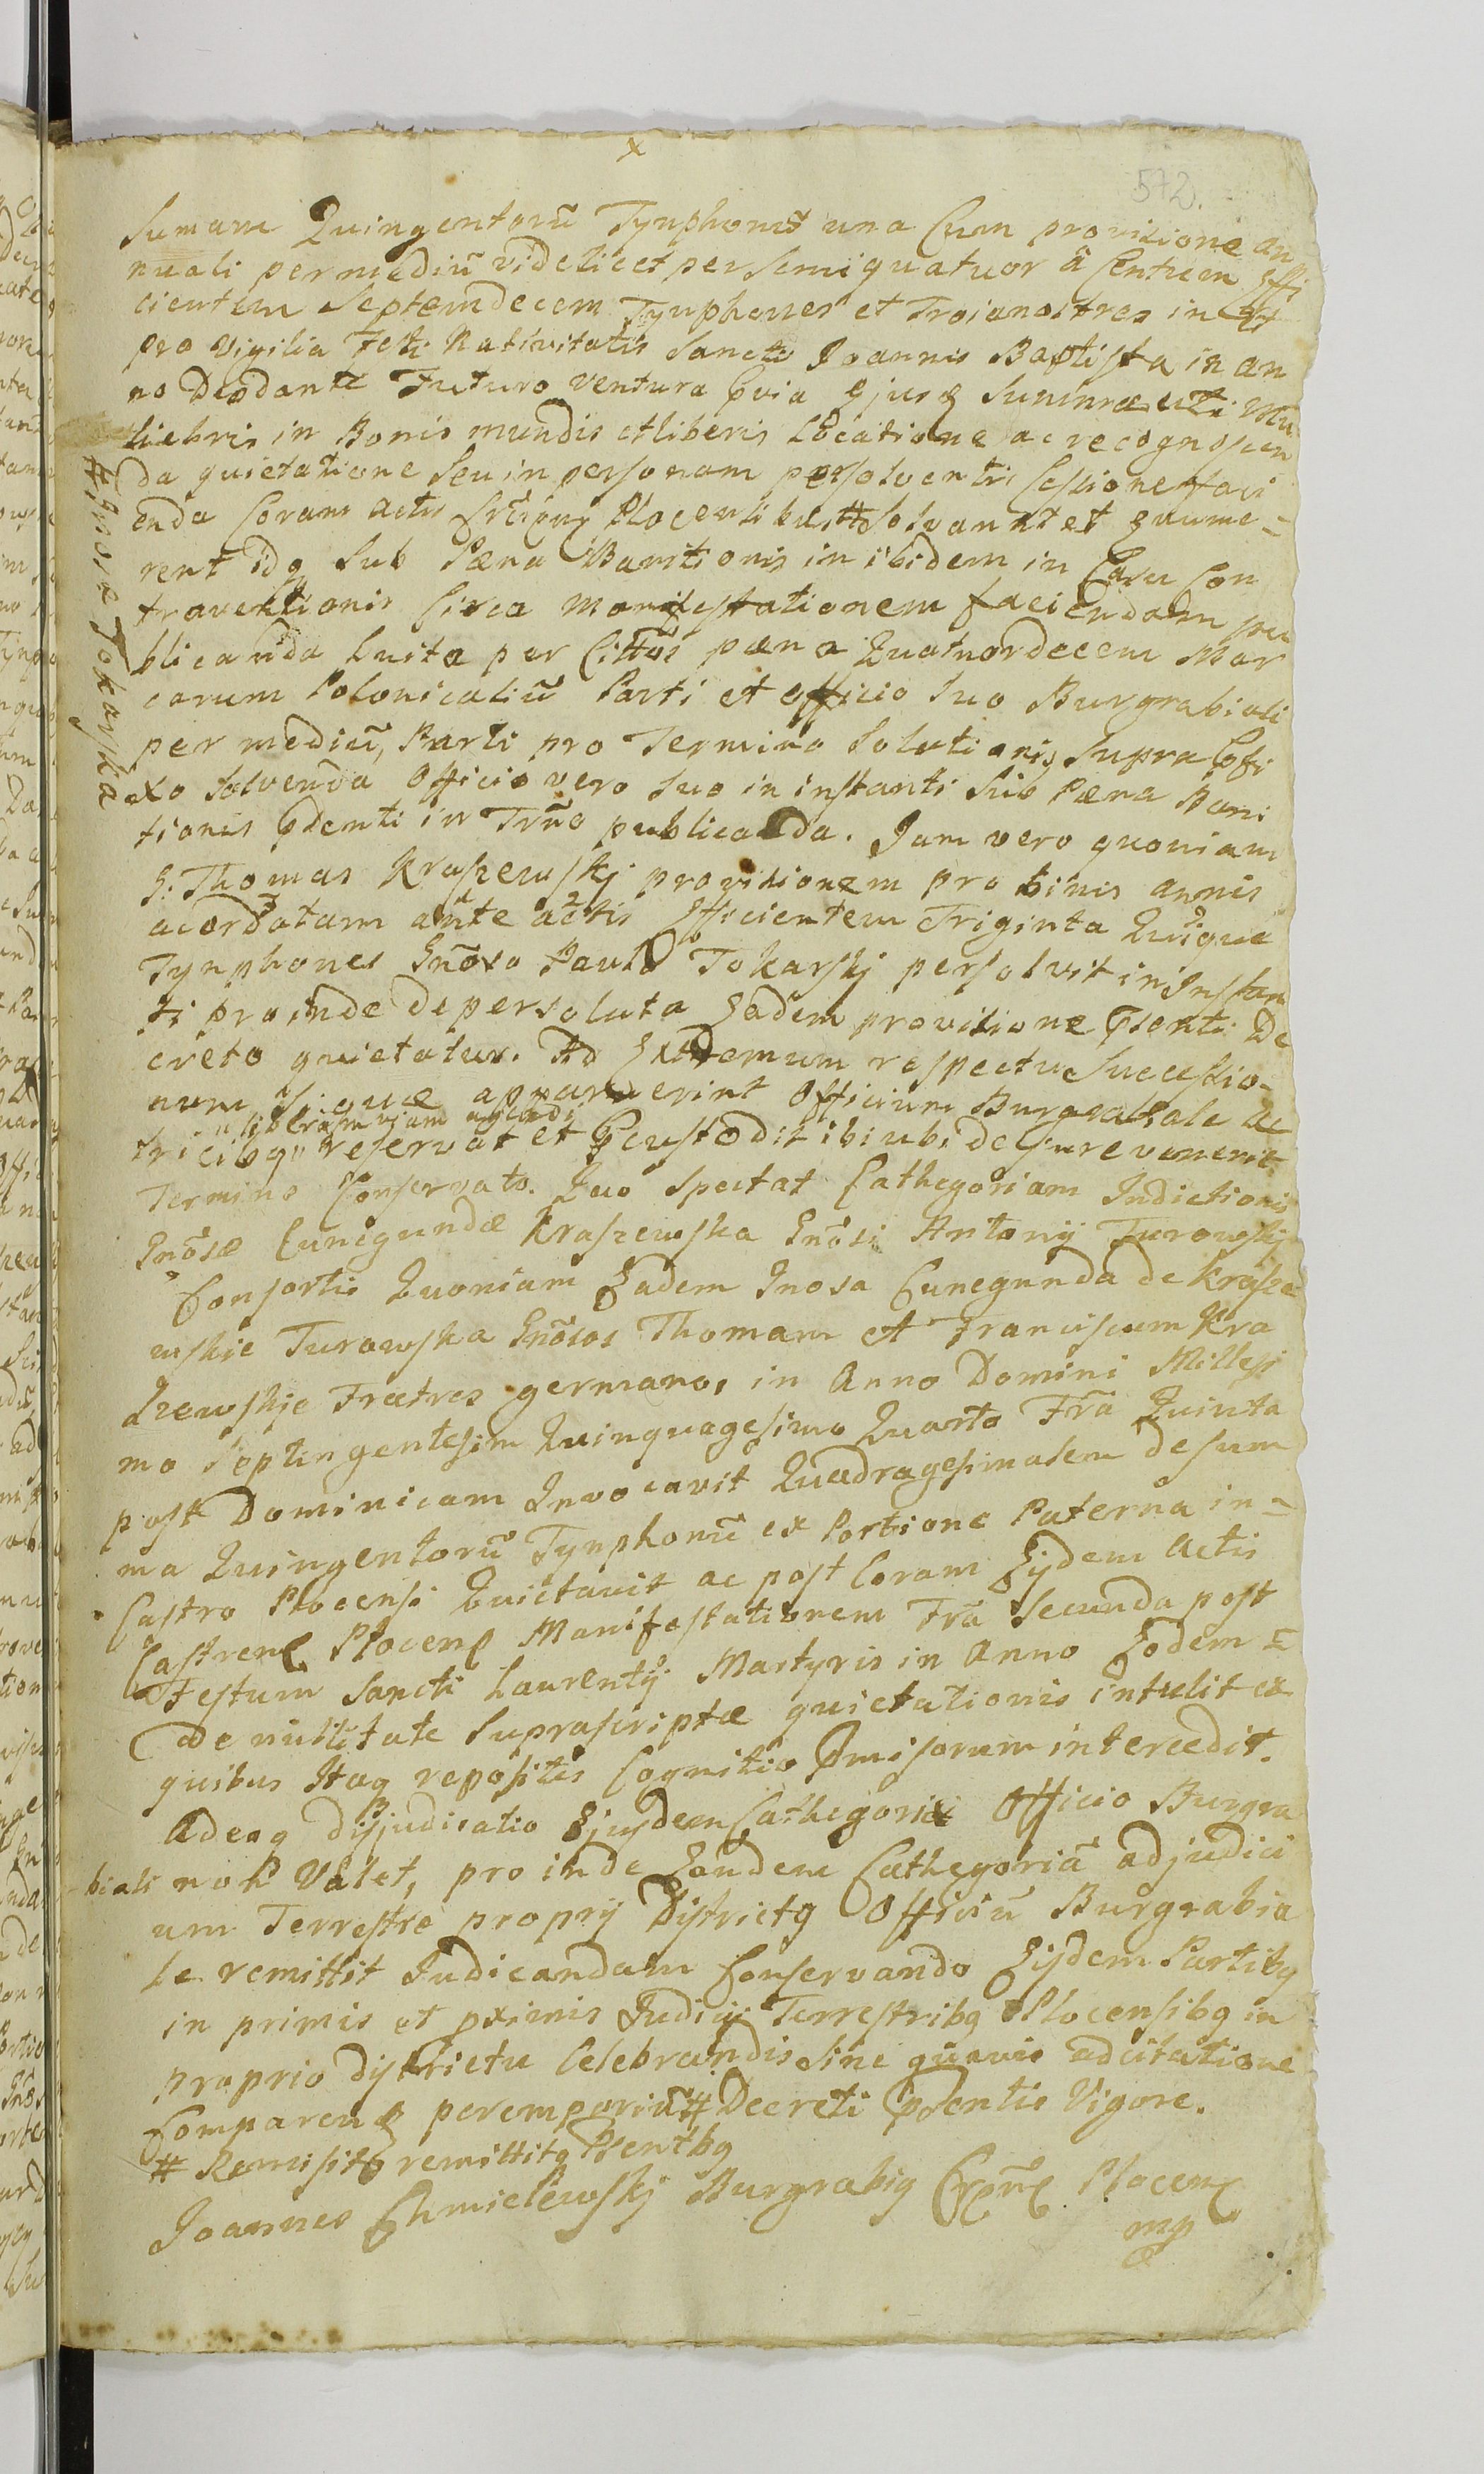 x
572.
Sumam Quingentorũ Tynphonũ una Cum provisione an
nuali per mediũ videlicet per Semi quatuor â Centum Effi
cientem Septemdecem Tynphones et Troianos tres in
pro Vigilia Festi Nativitatis Sancti Joannis Baptista in an
no Deo dante Futuro Ventura Ejusq Summæ uti Mu
liebris in Bonis mundis et liberis Locatione ac recognoscen
da quietatione Seu in personam persolventis Cessione faci
enda Coram Actis Plocensibus # Solvant et enume-
rent idq Sub Pæna Banitionis in ibidem in Casu Con
traventionis Circa Manifestationem faciendam pu
blicanda Luita per Cittos pæna Quatuordecem Mar
carum Polonicaliũ Parti et officio Suo Burgrabiali
per mediũ, Parti pro Termino Solutionis Supra
xo Solvenda Officio vero Suo in instanti Sub Pæna Bani
tionis in Trno publicanda. Jam vero quoniam
G. Thomas Kraszewskj provisionem pro binis annis
acordatam ante actis Efficientem Triginta Quĩque
Tynphones Gnoso Paulo Tokarskj persolvit in Instan
ti proinde de persoluta Eadem provisione Psenti De
creto quietatur. Ad Extremum respectu Successio-
num Si quæ apparuerint Officium Burgrabiale ac
" liberam viam agendi
tricibq " reservat et Pcustodit ibi ubi de Jure venerit
Termino Conservato. Quo Spectat Cathegoriam Indictionis
Gnosæ Cunegundæ Kraszewska Gnosi Antonij Turowskj
Consortis Quoniam Eadem Gnosa Cunegunda de Krasze
wskie Turowska Gnosos Thomam et Franciscum Kra
szewskie Fratres germanos in Anno Domini Millesi
mo Septingentesim Quinquagesimo Quarto Fra Quinta
post Dominicam Invocavit Quadragesimalem de Sum
ma Quingentorũ Tynphonũ ex Portione Paterna in=
Castro Plocensi Quietavit ac post Coram Eijdem Actis
Castren Plocen Manifestationem Fra Secunda post
Festum Sancti Laurentij Martyris in Anno Eodem =
de nullitate Suprascriptæ quietationis intulit ex
quibus Itaq repositis Cognitio Pmisorum intercedit.
Adeoq disjudicatio Ejusdem Cathegoriæ Officio Burgra
biali non Valet, proinde Eandem Cathegoriã ad judici
um Terrestre proprij Districtq Officiũ Burgrabia
le remittit Judicandam Conservando Eijdem Partibq
in primis et pximis Judicij Terrestribq Plocensibq in
proprio districtu Celebrandis Sine quavis adcitatione
Comparen peremporiũ # Decreti Psentis Vigore.
# Remisit remittitq Psentbq
Joannes Chmielewskj Burgrabiq Plocen
mp
# Gnosæ Tokarska